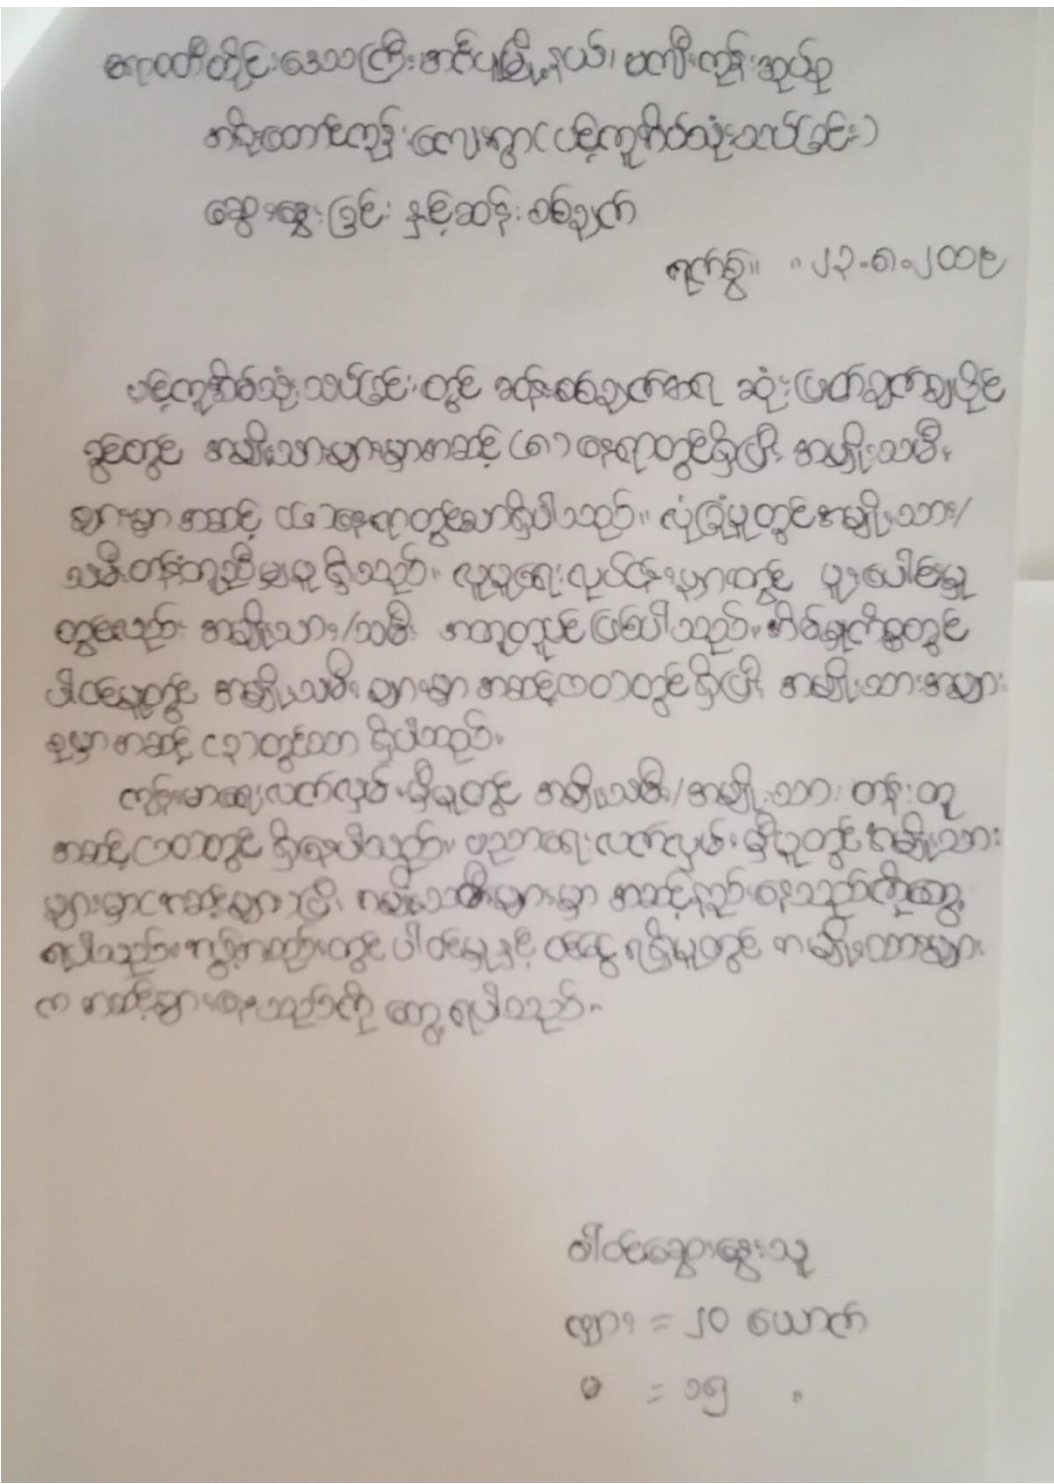 ဧရာဝတီတိုင်းဒေသကြီး၊ အင်္ဂပူမြို့နယ်၊ ကုန်းအုပ်စု
ကုန်းလေးရွာ (ပင့်ကူအိမ်သုံးသပ်ခြင်း)
ဆွေးနွေးခြင်း နှင့်ဆန်းစစ်ချက်
ရက်စွဲ။ ။ ၂၃.၈.၂၀၁၉
ပင့်ကူအိမ်သုံးသပ်ခြင်းတွင် ဆန်းစစ်ချက်အရ ဆုံးဖြတ်ချက်ချပိုင်
ခွင့်တွင် အမျိုးသားများမှာအဆင့် (၈) နေရာတွင်ရှိပြီး အမျိုးသမီး
များမှာ အဆင့် နေရာတွင်သာရှိပါသည်။ လုံခြုံမှုတွင်အမျိုးသား/
သမီးတန်းတူညီမျှမှု ရှိသည်။ လူမှုရေးလုပ်ငန်းများတွင် ပူးပေါင်းမှု
တွင်လည်း အမျိုးသား/သမီး အတူတူပင်ဖြစ်ပါသည်။ အိမ်မှုကိစ္စတွင်
ပါဝင်မှုတွင် အမျိုးသမီးများမှာ အဆင့် တွင်ရှိပြီး အမျိုးသားအများ
စုမှာအဆင့် (၃) တွင်သာ ရှိပါသည်။
ကျန်းမာရေးလက်လှမ်းမှီမှုတွင် အမျိုးသမီး/အမျိုးသား တန်းတူ
အဆင့် တွင် ရှိနေပါသည်။ ပညာရေးလက်လှမ်းမှီမှုတွင်အမျိုးသား
များမှာ အဆင့်များပြီး အမျိုးသမီးများမှာ အဆင့်နည်းနေသည်ကိုတွေ့
ရပါသည်။ ပါဝင်မှုနှင့် ဝင်ငွေရရှိမှုတွင် အမျိုးသားများ
က အဆင့်များနေသည်ကို တွေ့ရပါသည်။
ပါဝင်ဆွေးနွေးသူ
ကျား = ၂၀ ယောက်
မ = ၁၅ "